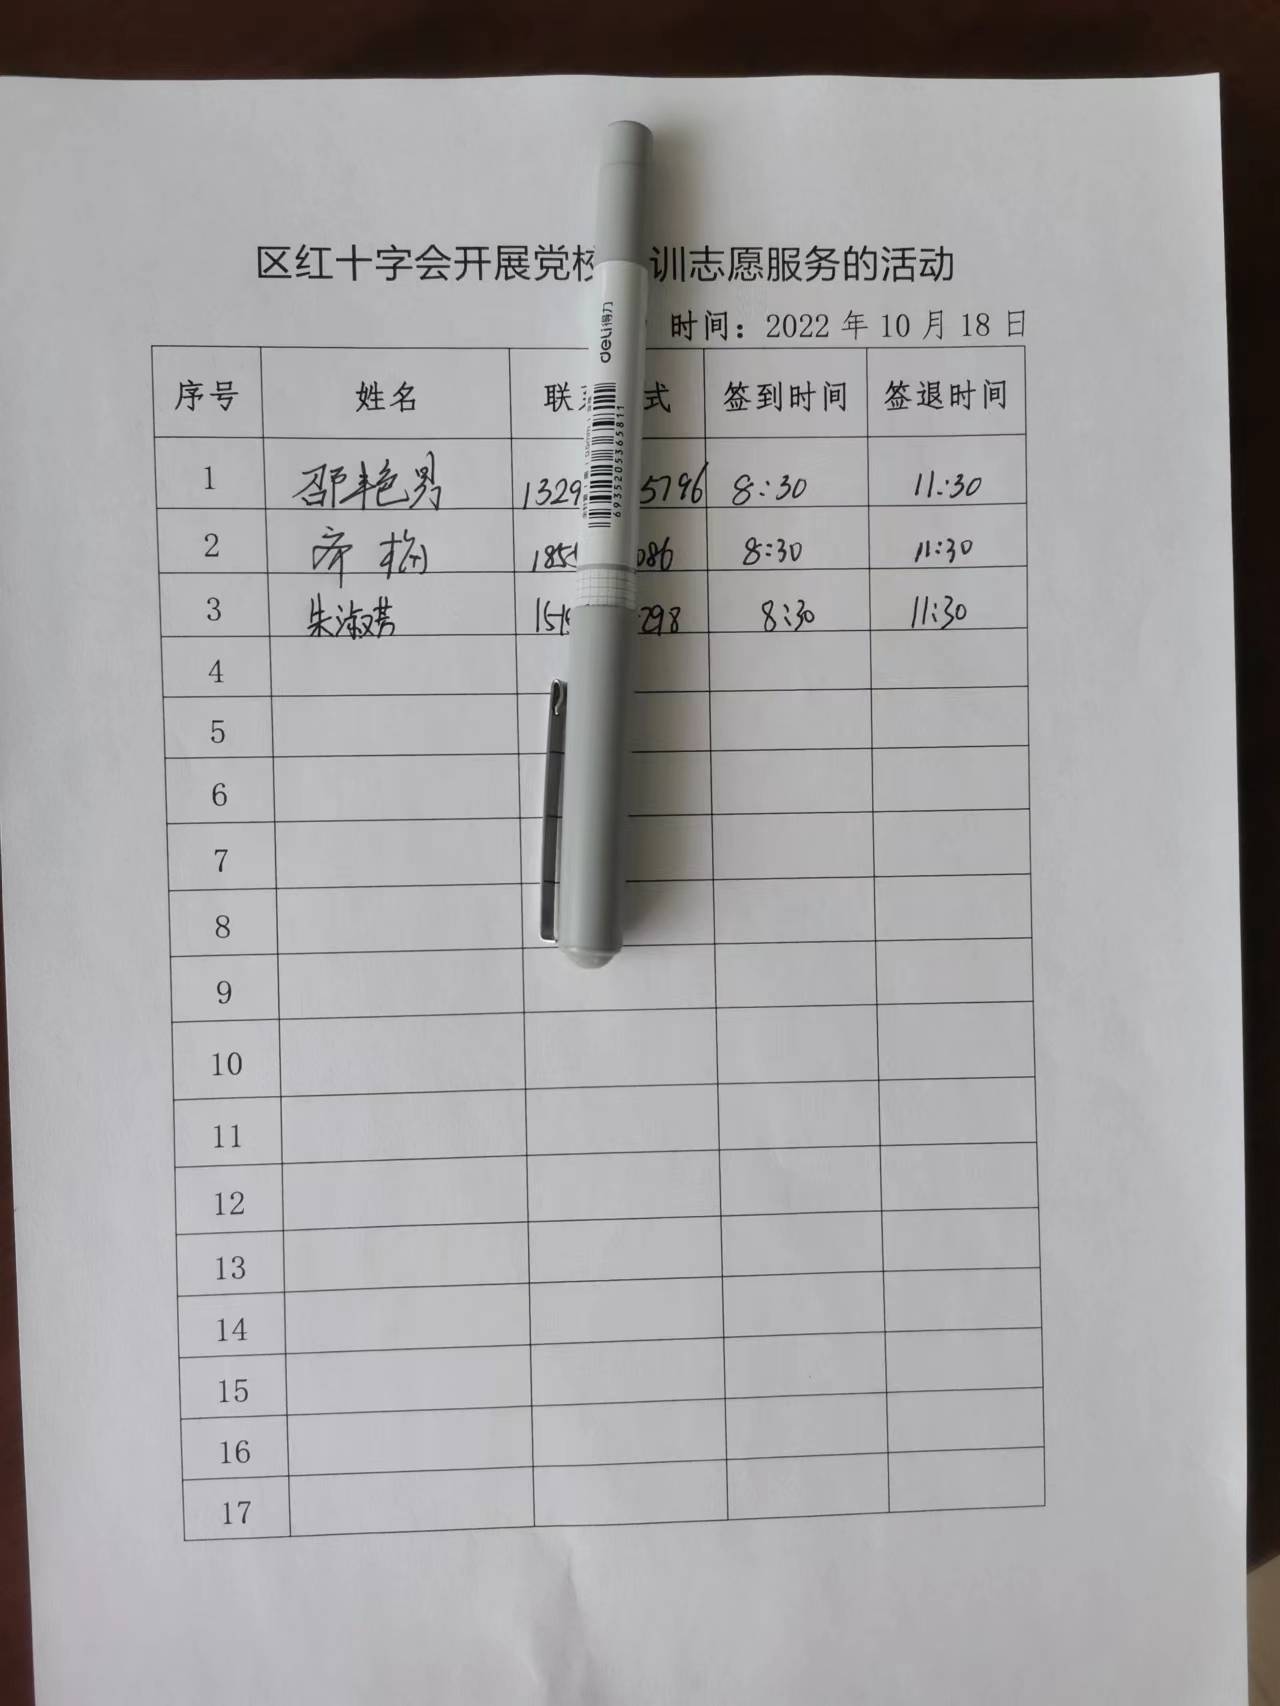 区红十字会开展党校 训志愿服务的活动
时间：2022年10月18日
序号 姓名 联 式 签到时间 签退时间
1 邵艳男 1329 5796 8:30 11:30
2 齐梅 185 086 8:30 11:30
3 朱淑芳 151 298 8:30 11:30
4
5
6
7
8
9
10
11
12
13
14
15
16
17
deli得力
6935205365811